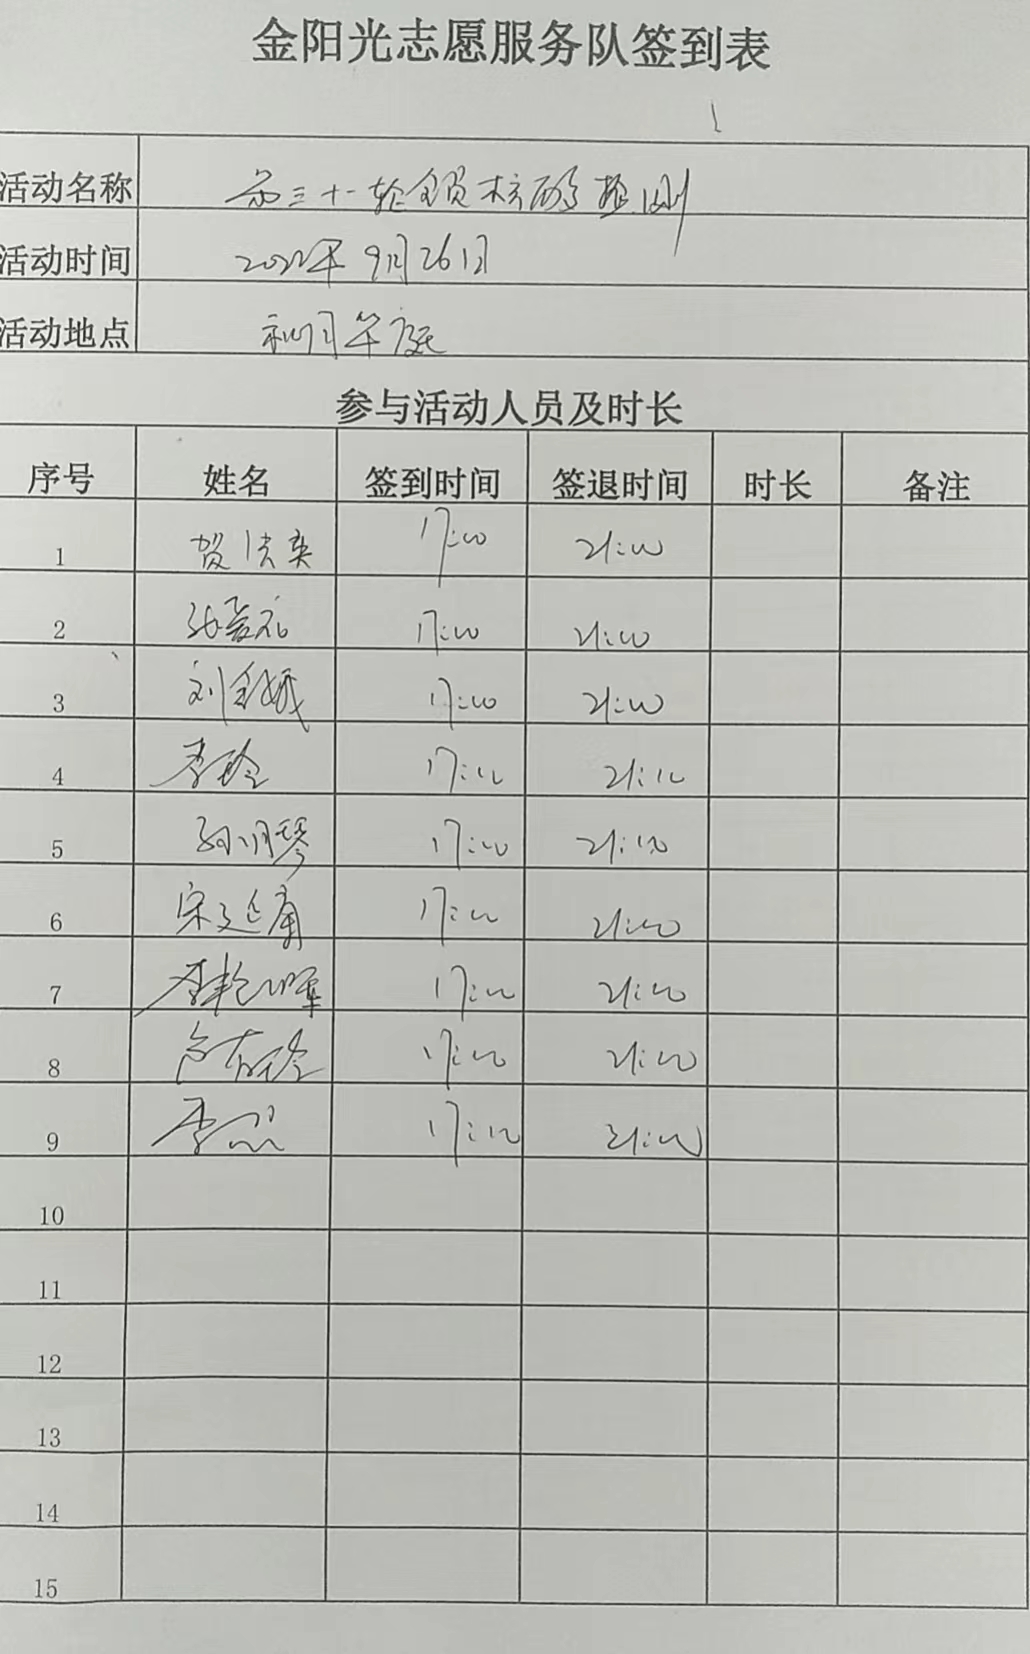 金阳光志愿服务队签到表
活动名称 第三十一轮全员核酸检测
活动时间 2022年9月26日
活动地点
参与活动人员及时长
序号 姓名 签到时间 签退时间 时长 备注
1 17:00 21:00
2 17:00 21:00
3 刘金娥 17:00 21:00
4 李玲 17:00 21:00
5 孙明琴 17:00 21:00
6 宋延 17:00 21:00
7 李艳 17:00 21:00
8 17:00 21:00
9 李 17:00 21:00
10
11
12
13
14
15